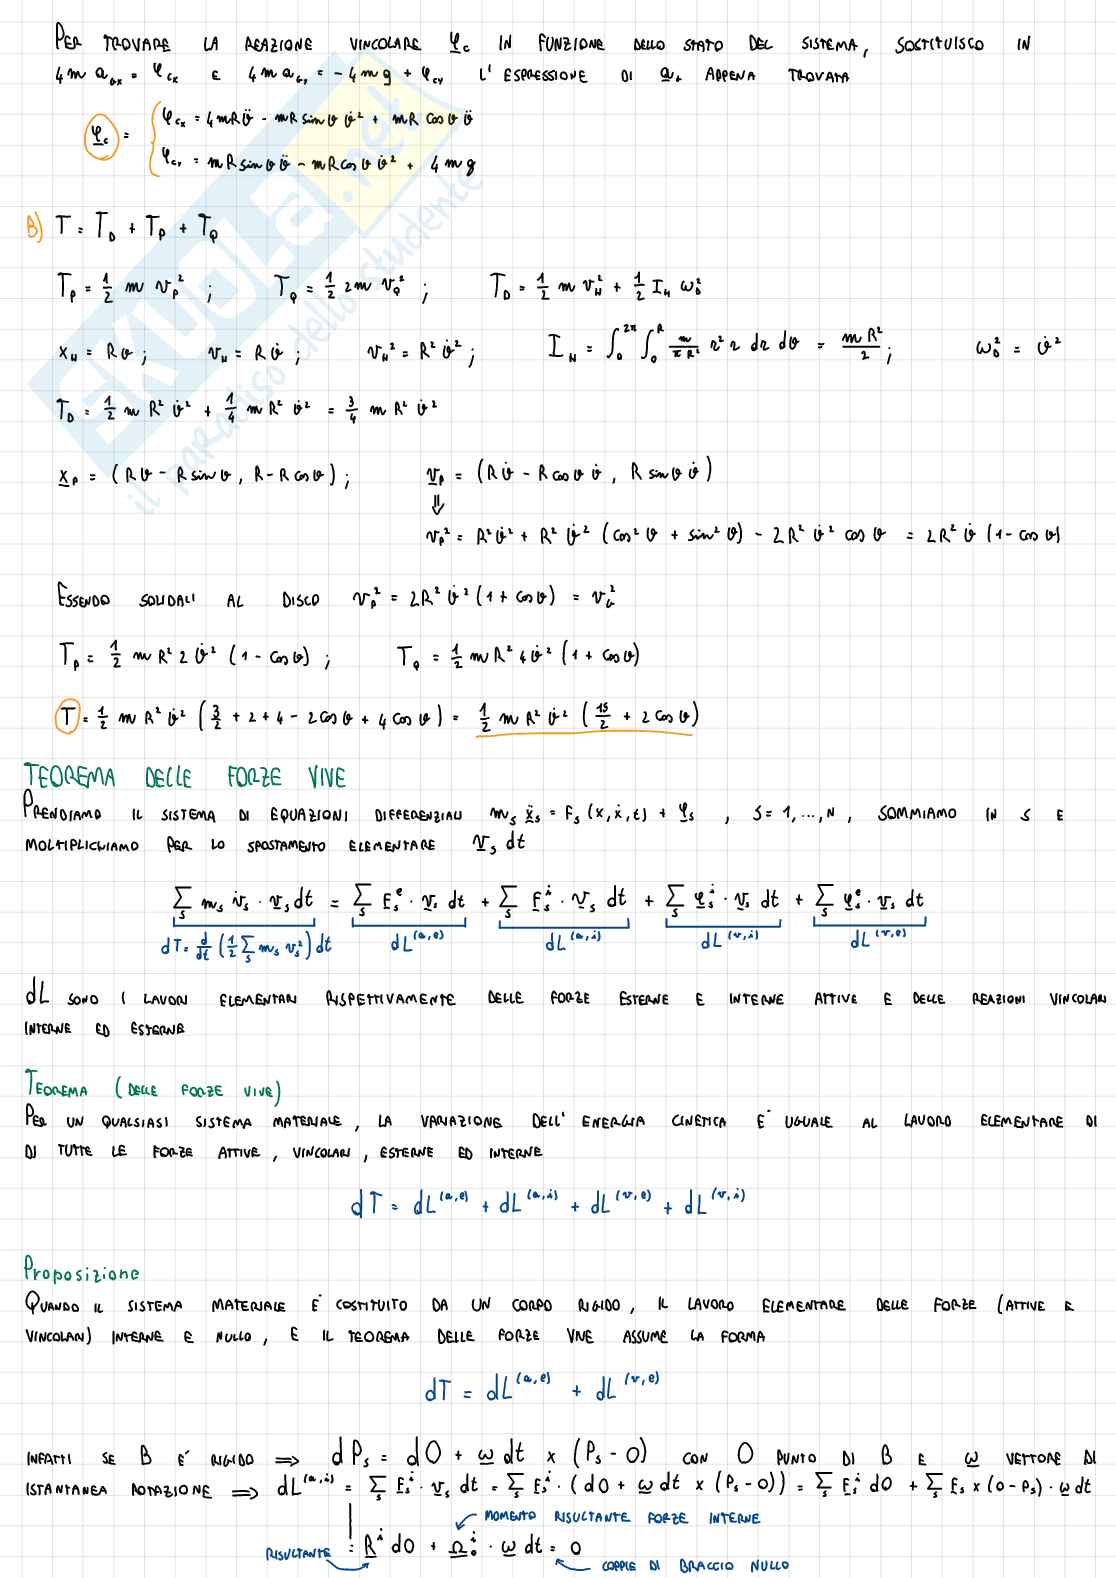 PER TROVARE LA REAZIONE VINCOLARE φ_c IN FUNZIONE DELLO STATO DEL SISTEMA, SOSTITUISCO IN
4m a_Gx = φ_cx E 4m a_Gy = -4mg + φ_cy L'ESPRESSIONE DI a_G APPENA TROVATA
φ_c = { φ_cx = 4mRϑ̈ - mR sinϑ ϑ̇² + mR cosϑ ϑ̈
φ_cy = mR sinϑ ϑ̈ - mR cosϑ ϑ̇² + 4mg
B) T = T_D + T_P + T_Q
T_P = 1/2 m v_P² ; T_Q = 1/2 2m v_Q² ; T_D = 1/2 m v_H² + 1/2 I_H ω_D²
x_H = Rϑ ; v_H = Rϑ̇ ; v_H² = R²ϑ̇² ; I_H = ∫₀^{2π} ∫₀^R m/(πR²) r² r dr dϑ = mR²/2 ; ω_D² = ϑ̇²
T_D = 1/2 m R² ϑ̇² + 1/4 m R² ϑ̇² = 3/4 m R² ϑ̇²
x_P = (Rϑ - R sinϑ, R - R cosϑ) ; v_P = (Rϑ̇ - R cosϑ ϑ̇, R sinϑ ϑ̇)
⇓
v_P² = R²ϑ̇² + R²ϑ̇² (cos²ϑ + sin²ϑ) - 2R²ϑ̇² cosϑ = 2R²ϑ̇ (1 - cosϑ)
ESSENDO SOLIDALI AL DISCO v_P² = 2R²ϑ̇² (1 + cosϑ) = v_G²
T_P = 1/2 m R² 2ϑ̇² (1 - cosϑ) ; T_Q = 1/2 m R² 4ϑ̇² (1 + cosϑ)
T = 1/2 m R² ϑ̇² (3/2 + 2 + 4 - 2cosϑ + 4cosϑ) = 1/2 m R² ϑ̇² (15/2 + 2cosϑ)
TEOREMA DELLE FORZE VIVE
PRENDIAMO IL SISTEMA DI EQUAZIONI DIFFERENZIALI m_s ẍ_s = F_s(x, ẋ, t) + φ_s , S = 1,...,N , SOMMIAMO IN S E
MOLTIPLICHIAMO PER LO SPOSTAMENTO ELEMENTARE v_s dt
∑_s m_s v̇_s · v_s dt = ∑_s F_s^e · v_s dt + ∑_s F_s^i · v_s dt + ∑_s φ_s^i · v_s dt + ∑_s φ_s^e · v_s dt
dT = d/dt (1/2 ∑_s m_s v_s²) dt dL^(a,e) dL^(a,i) dL^(v,i) dL^(v,e)
dL SONO I LAVORI ELEMENTARI RISPETTIVAMENTE DELLE FORZE ESTERNE E INTERNE ATTIVE E DELLE REAZIONI VINCOLARI
INTERNE ED ESTERNE
TEOREMA (DELLE FORZE VIVE)
PER UN QUALSIASI SISTEMA MATERIALE, LA VARIAZIONE DELL'ENERGIA CINETICA E' UGUALE AL LAVORO ELEMENTARE DI
DI TUTTE LE FORZE ATTIVE, VINCOLARI, ESTERNE ED INTERNE
dT = dL^(a,e) + dL^(a,i) + dL^(v,e) + dL^(v,i)
Proposizione
QUANDO IL SISTEMA MATERIALE E' COSTITUITO DA UN CORPO RIGIDO, IL LAVORO ELEMENTARE DELLE FORZE (ATTIVE E
VINCOLARI) INTERNE E NULLO, E IL TEOREMA DELLE FORZE VIVE ASSUME LA FORMA
dT = dL^(a,e) + dL^(v,e)
INFATTI SE B E' RIGIDO ⇒ dP_s = dO + ω dt × (P_s - O) CON O PUNTO DI B E ω VETTORE DI
ISTANTANEA ROTAZIONE ⇒ dL^(a,i) = ∑_s F_s^i · v_s dt = ∑_s F_s^i · (dO + ω dt × (P_s - O)) = ∑_s F_s^i dO + ∑_s F_s × (O - P_s) · ω dt
MOMENTO RISULTANTE FORZE INTERNE
RISULTANTE = R^i dO + Ω_o^i · ω dt = 0
COPPIE DI BRACCIO NULLO
SKUOLA.net
il paradiso dello studente